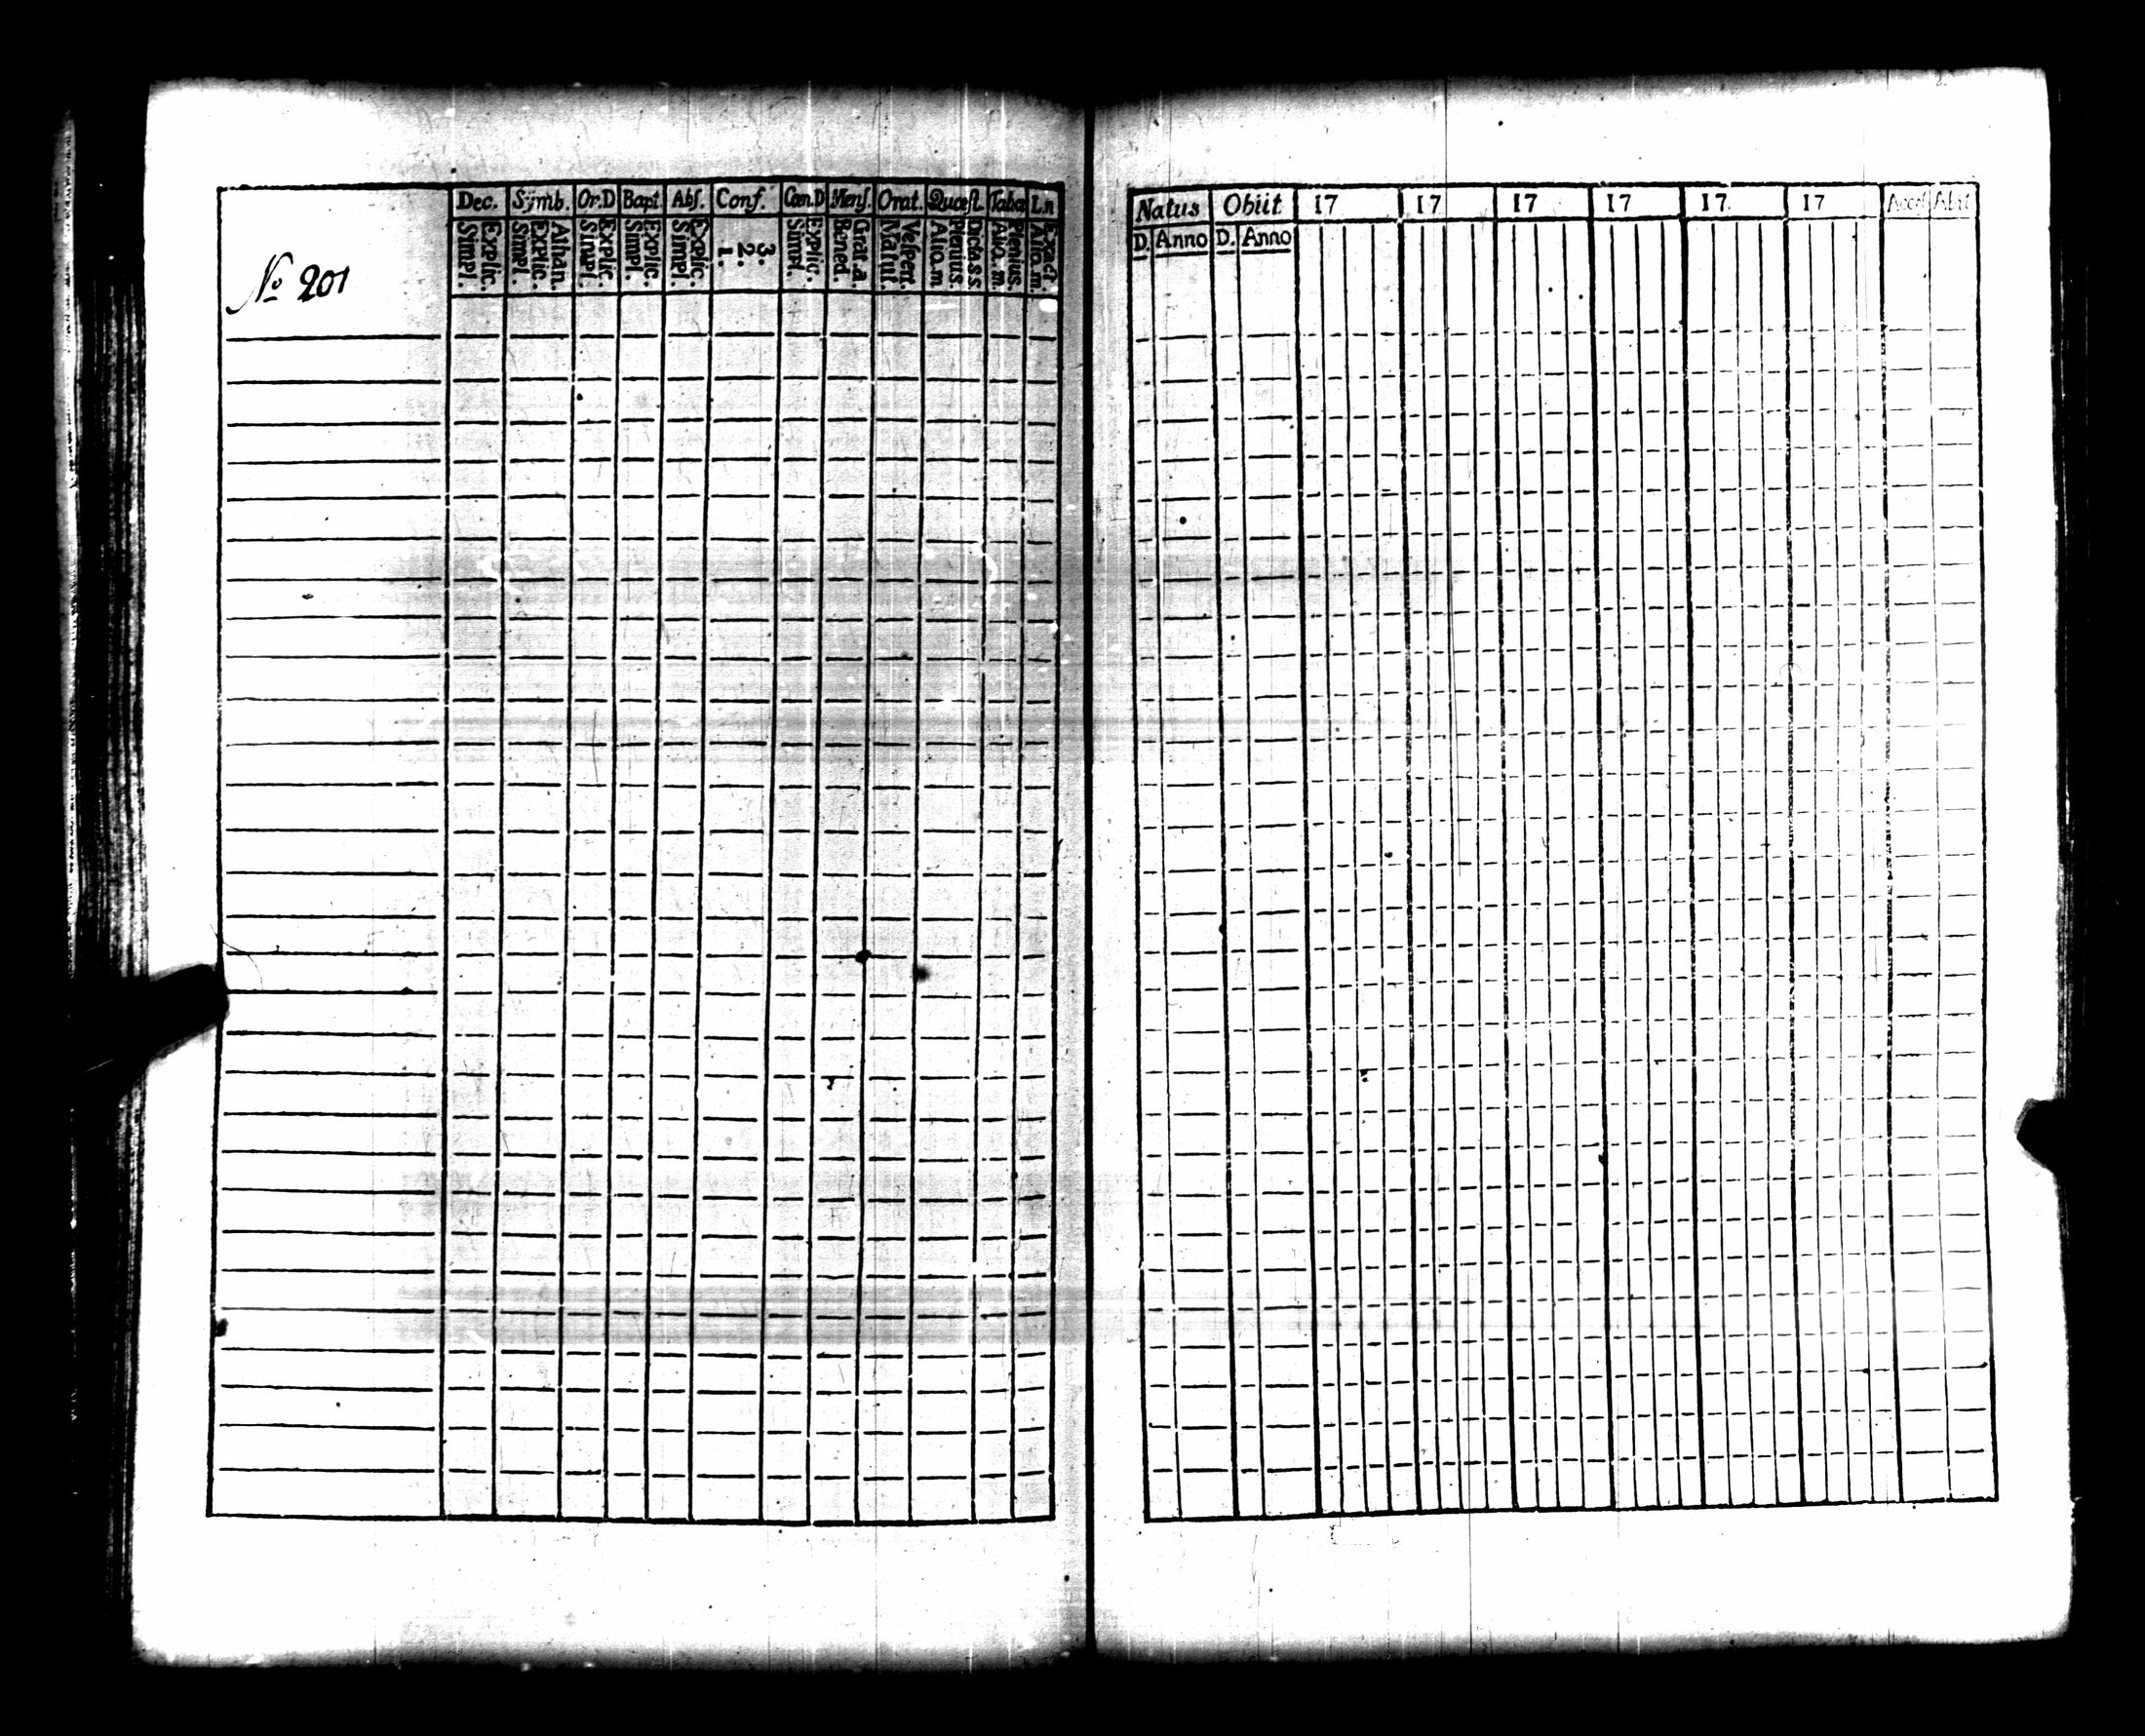 Dec. Sÿmb. Or.D Bapt. Abs. Conf. Cœn.D Mens. Orat. Quæst. Taba Ln
Simpl. Explic. Simpl. Explic. Athan. Simpl. Explic. Simpl. Explic. Simpl. Explic. 1. 2. 3. Simpl. Explic. Bened. Grat.a. Matut. Vespert. Alio.m Plenius. Dicta s.s. Alio.m. Plenius. Alio.m. Exact.
No 201
Natus Obiit 17 17 17 17 17. 17 Abiit
D. Anno D. Anno